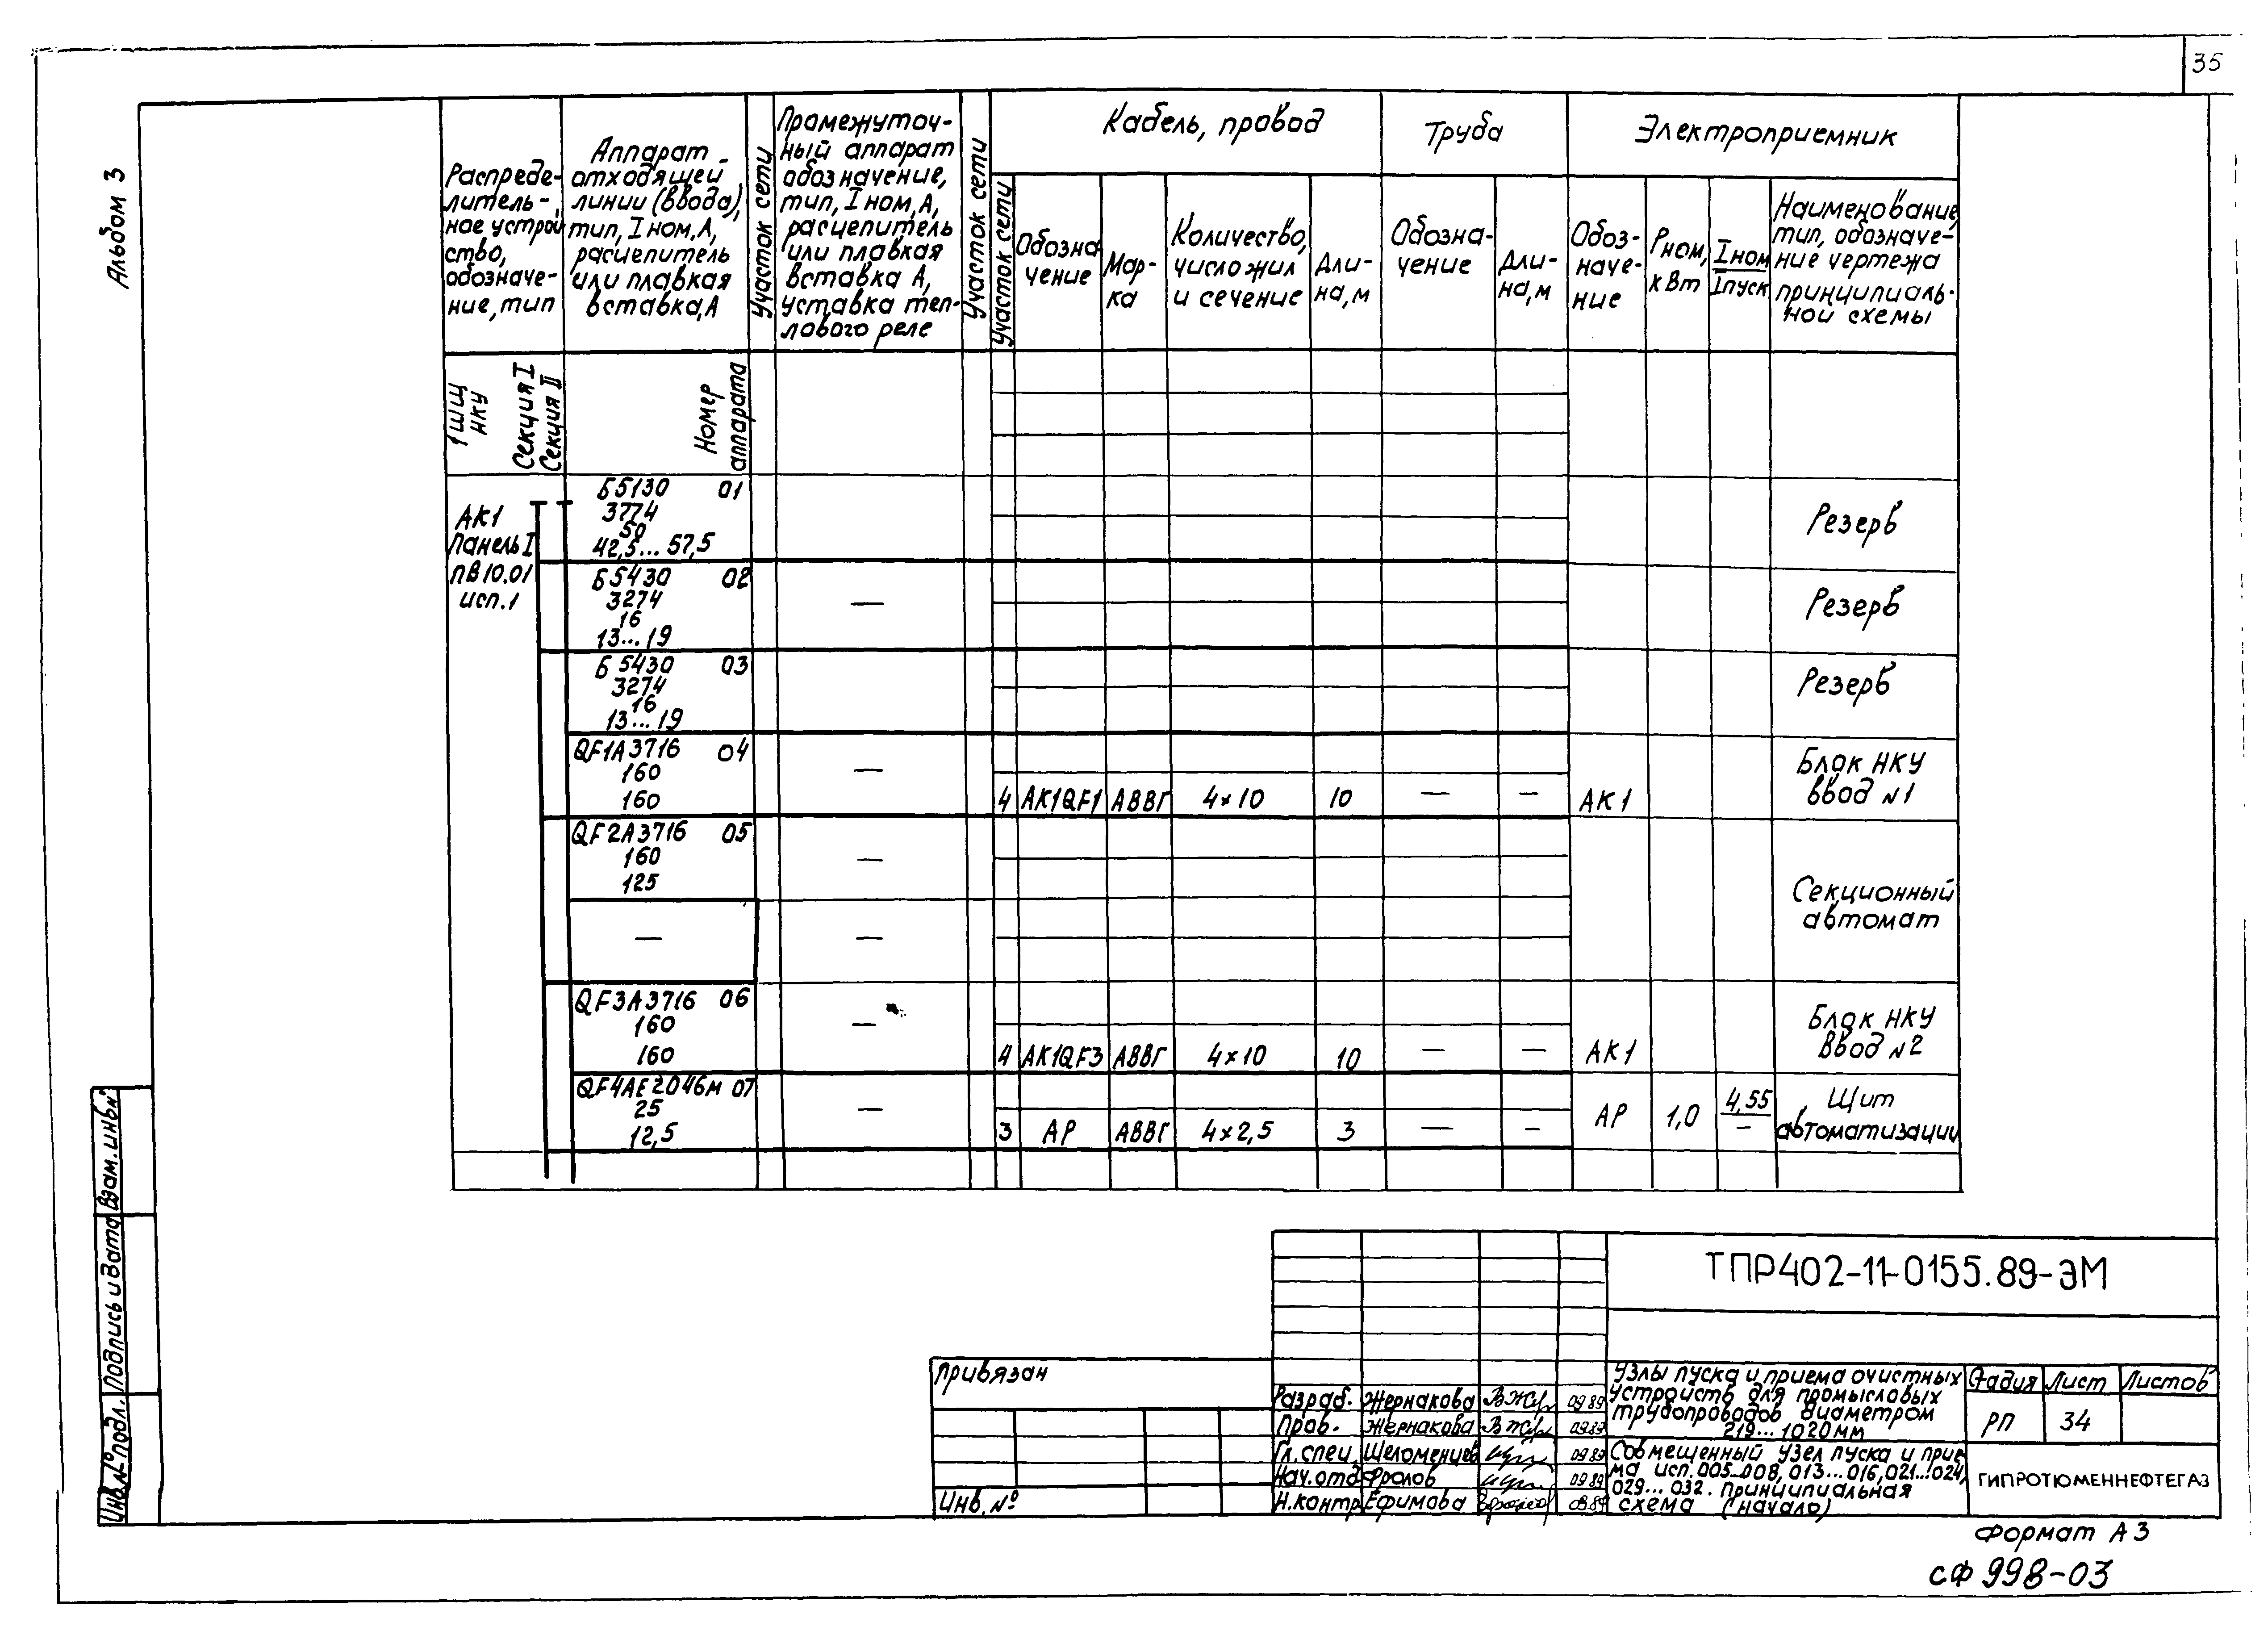 35
Альбом 3
Распреде-
литель-
ное устрой
ство,
обозначе-
ние, тип
Аппарат
отходящей
линии (ввода),
тип, Iном, А,
расцепитель
или плавкая
вставка, А
Участок сети
Промежуточ-
ный аппарат
обозначение,
тип, Iном, А,
расцепитель
или плавкая
вставка А,
уставка теп-
лового реле
Участок сети
Кабель, провод
Участок сети
Обозна
чение
Мар-
ка
Количество,
число жил
и сечение
Дли-
на, м
Труба
Обозна-
чение
Дли-
на, м
Электроприемник
Обоз-
наче-
ние
Рном,
кВт
Iном
Iпуск
Наименование,
тип, обозначе-
ние чертежа
принципиаль-
ной схемы
1ШЩ
НКУ
Секция I
Секция II
Номер
аппарата
АК1
Панель I
ПВ10.01
исп.1
Б5130 01
3774
50
42,5...57,5
Резерв
Б5430 02
3274
16
13...19
—
Резерв
Б5430 03
3274
16
13...19
Резерв
QF1А3716 04
160
160
—
4 АК1QF1 АВВГ 4×10 10 — — АК1
Блок НКУ
ввод №1
QF2А3716 05
160
125
—
Секционный
автомат
— —
QF3А3716 06
160
160
—
4 АК1QF3 АВВГ 4×10 10 — — АК1
Блок НКУ
ввод №2
QF4АЕ2046М 07
25
12,5
—
3 АР АВВГ 4×2,5 3 — — АР 1,0 4,55 —
Щит
автоматизации
Взам.инв№
Подпись и дата
Инв.№подл.
ТПР402-11-0155.89-ЭМ
Привязан
Инв.№
Разраб. Жернакова 09.89
Пров. Жернакова 09.89
Гл.спец. Шеломенцев 09.89
Нач.отд Фролов 09.89
Н.контр Ефимова 09.89
Узлы пуска и приема очистных
устройств для промысловых
трубопроводов диаметром
219...1020мм
Стадия Лист Листов
РП 34
Совмещенный узел пуска и прие-
ма исп.005...008, 013...016, 021...024,
029...032. Принципиальная
схема (начало)
ГИПРОТЮМЕННЕФТЕГАЗ
Формат А3
СФ 998-03